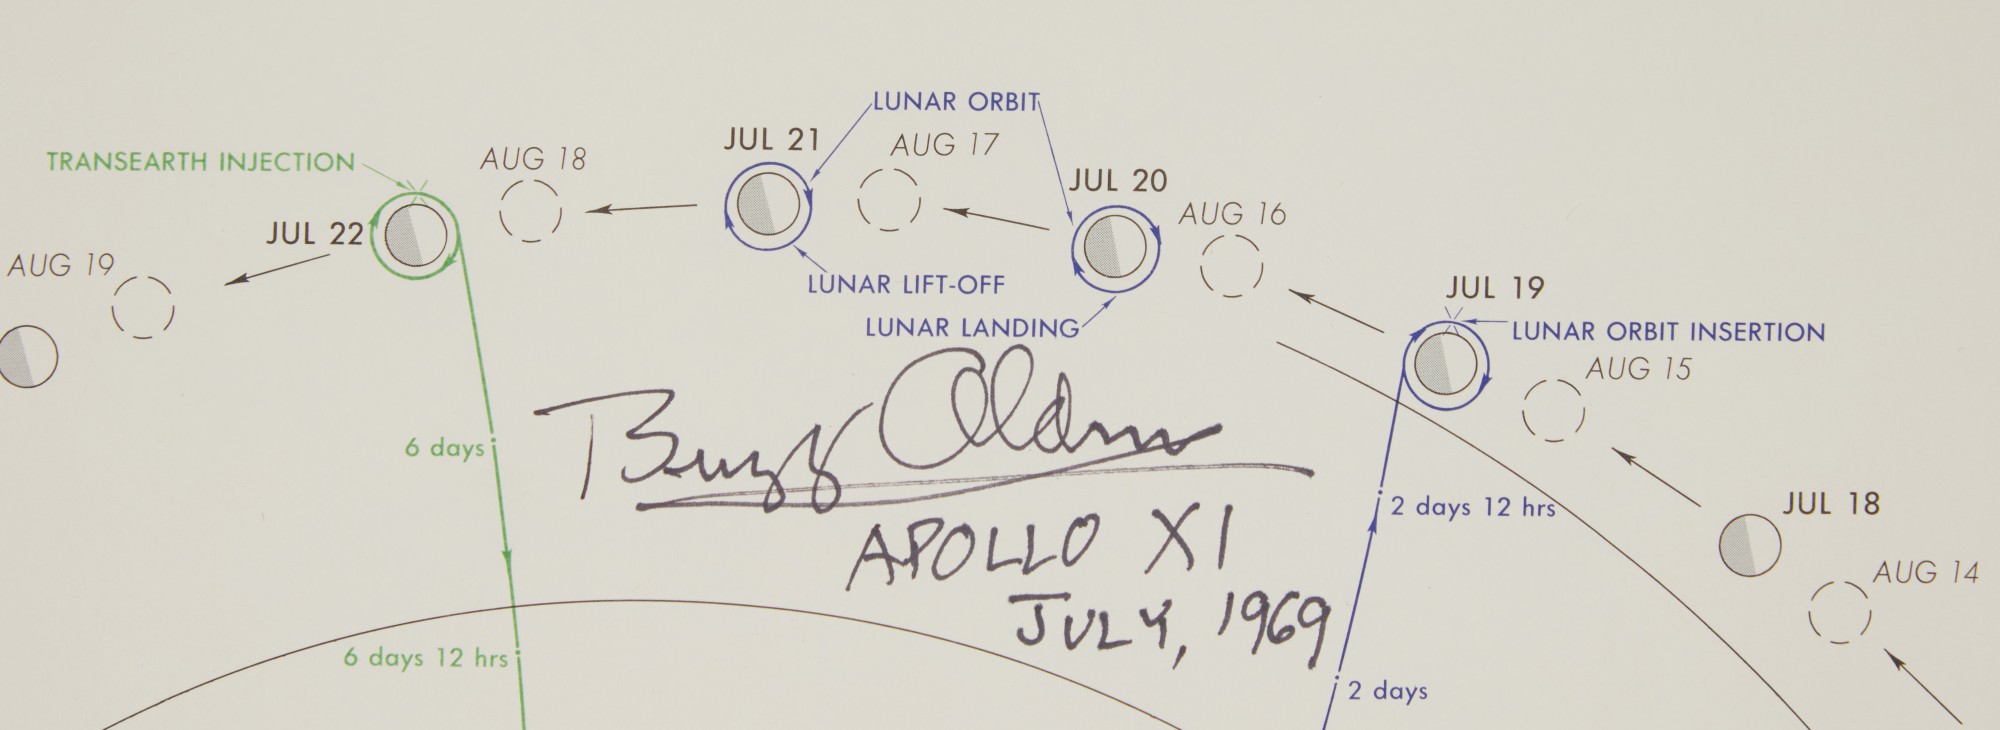 LUNAR ORBIT
JUL 21
AUG 17
TRANSEARTH INJECTION
AUG 18
JUL 20
AUG 16
JUL 22
AUG 19
LUNAR LIFT-OFF
JUL 19
LUNAR LANDING
LUNAR ORBIT INSERTION
AUG 15
Buzz Aldrin
6 days
2 days 12 hrs
JUL 18
APOLLO XI
AUG 14
JULY, 1969
6 days 12 hrs
2 days